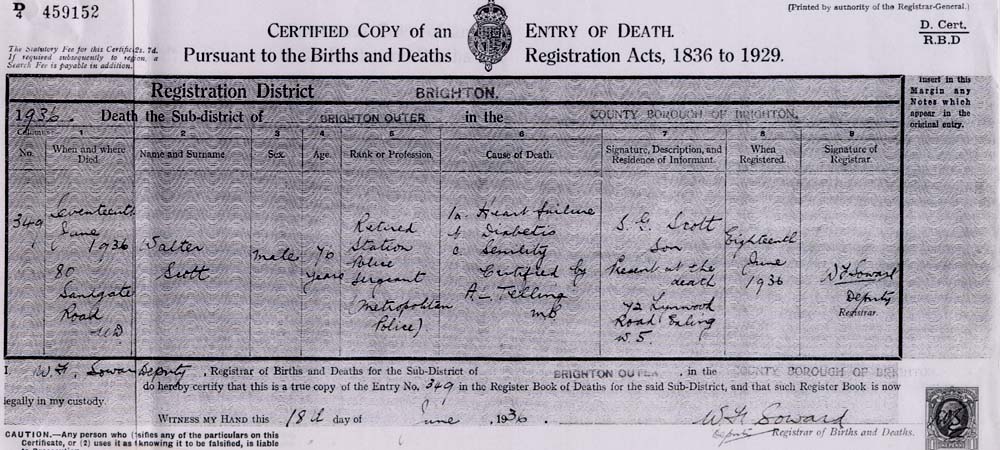 D/4 459152
(Printed by authority of the Registrar-General.)
CERTIFIED COPY of an ENTRY OF DEATH.
D. Cert.
R.B.D
The Statutory Fee for this Certific 2s. 7d.
If required subsequently to a
Search Fee is payable in addition.
Pursuant to the Births and Deaths Registration Acts, 1836 to 1929.
Registration District BRIGHTON.
Insert in this
Margin any
Notes which
appear in the
original entry.
1936. Death the Sub-district of BRIGHTON OUTER in the COUNTY BOROUGH OF BRIGHTON.
1 2 3 4 5 6 7 8 9
No. When and where Died Name and Surname Sex Age. Rank or Profession Cause of Death. Signature, Description, and Residence of Informant. When Registered. Signature of Registrar.
349
Seventeenth
June
1936
80
Sandgate
Road
U.D.
Walter
Scott
male
70
years
Retired
Station
Police
Sergeant
(Metropolitan
Police)
1a. Heart failure
b Diabetis
c Senility
Certified by
A. Telling
MB
S. G. Scott
Son
Present at the
death
72 Lynwood
Road Ealing
W 5.
Eighteenth
June
1936
W F Soward
Deputy
Registrar.
I W. F. Sowar Deputy, Registrar of Births and Deaths for the Sub-District of BRIGHTON OUTER, in the COUNTY BOROUGH OF BRIGH
do hereby certify that this is a true copy of the Entry No. 349 in the Register Book of Deaths for the said Sub-District, and that such Register Book is now
legally in my custody.
WITNESS MY HAND this 18th day of June, 1936. W F Soward
Deputy Registrar of Births and Deaths.
CAUTION.—Any person who (1 sifies any of the particulars on this
Certificate, or (2) uses it as knowing it to be falsified, is liable
to Prosecution